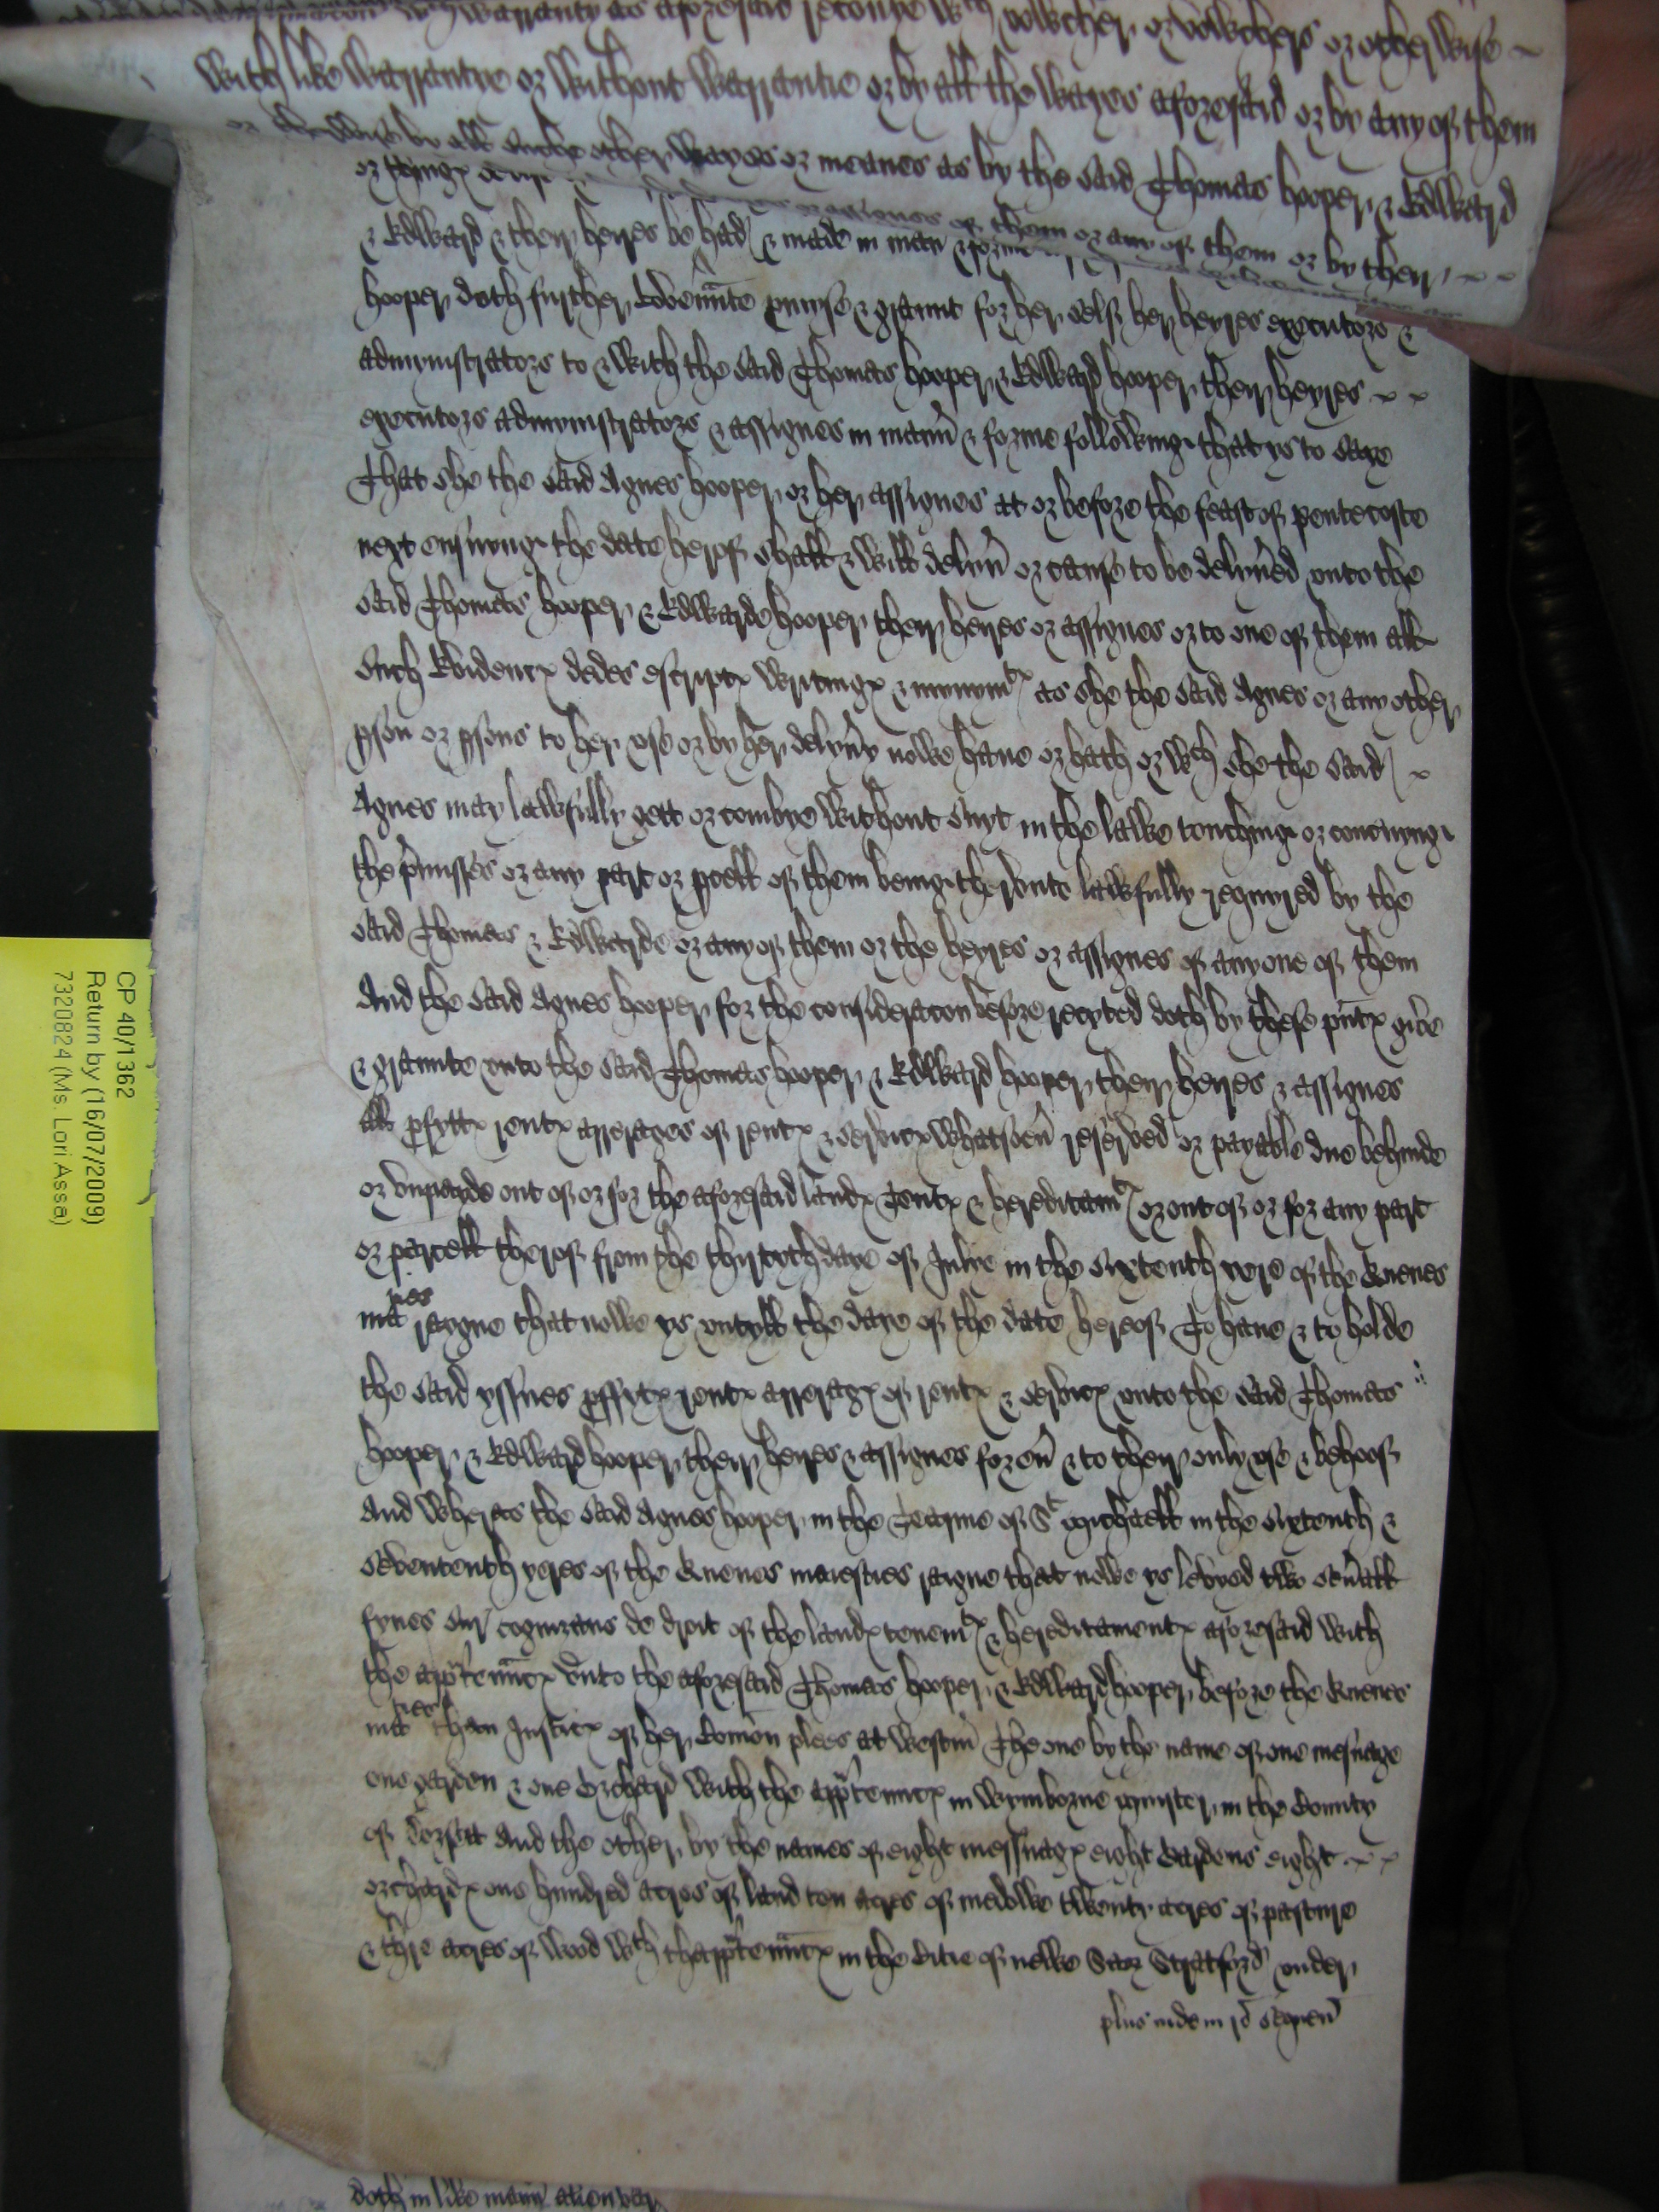 warranty as aforesaid recouye wth vowcher or vowchers or otherwise
with like warrantie or without warrantie or by all the wayes aforesaid or by any of them
or otherwise by all suche other wayes or meanes as by the said Thomas hooper & Edward
or assignes of them or any of them or by their
& Edward & their heyres be had & made in man & forme
hooper doth further Coven^a^nte p^r^myse & graunt for her self her heyres executors &
admynistrators to & with the said Thomas hooper & Edward hooper their heyres
executors admynistrators & assignes in mann & forme followinge that ys to saye
That she the said Agnes hooper or her assignes at or before the feast of pentecoste
next ensuyng the date herof shall & will delyu or cause to be delyued vnto the
said Thomas hooper & Edwarde hooper their heyres or assignes or to one of them all
such Evidenc dedes escript writing & mynymt as she the said Agnes or any other
pson or psons to her vse or by her delyuy nowe haue or hath or wch she the said
Agnes may lawfully gett or combye without suyt in the lawe touching or concnyng
the pmisses or any part or pcell of them being thervnto lawfully requyred by the
said Thomas & Edwarde or any of them or the heyres or assignes of any one of them
And the said Agnes hooper for the consideracon before recyted doth by these pnts give
& graunte vnto the said Thomas hooper & Edward hooper their heyres & assignes
all pfytts rents arrerages of rents & services whatsoeu reserved or payable due behinde
or vnpayde out of or for the aforesaid lands tents & hereditamts or out of or for any part
or parcell therof from the thirtyth daye of Julye in the sixtenth yere of the Quenes
maties raygne that nowe ys vntyll the daye of the date hereof To haue & to holde
the said yssues pffytts rents arrerags of rents & services vnto the said Thomas
hooper & Edward hooper their heyres & assignes foreu & to their only vse & behoof
And wheras the said Agnes hooper in the Tearme of St Michaell in the sixtenth &
sevententh yeres of the Quenes maiesties raigne that nowe ys levyed two seuall
fynes sur cognizans de droit of the lands tenemts & hereditaments aforesaid with
the apptennces vnto the aforesaid Thomas hooper & Edward hooper before the Quenes
maties than Justics of her Comon plees at Westm The one by the name of one mesuage
one garden & one Orchard with the apptennces in Wymborne mynster in the County
of Dorset And the other by the names of eight messuags eight Gardens eight
orchards one hundred acres of land ten acres of medowe twenty acres of pasture
& thre acres of wood wth thapptennces in the Citie of newe Sar Stratford vnder
plus inde in ro sequen
doth in like mann
CP 40/1362
Return by (16/07/2009)
7320824 (Ms. Lori Assa)